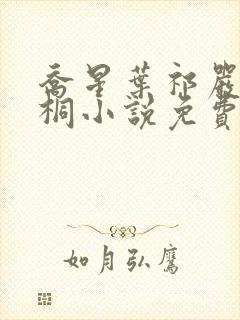 喬星葉祁嚴
桐小說免費
如月弘鷹